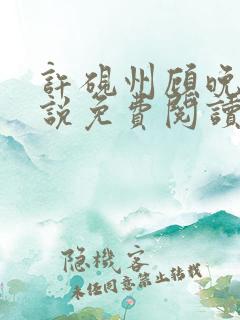 許硯州顧晚
說免費閱讀
隐機客
未任同意禁止转载